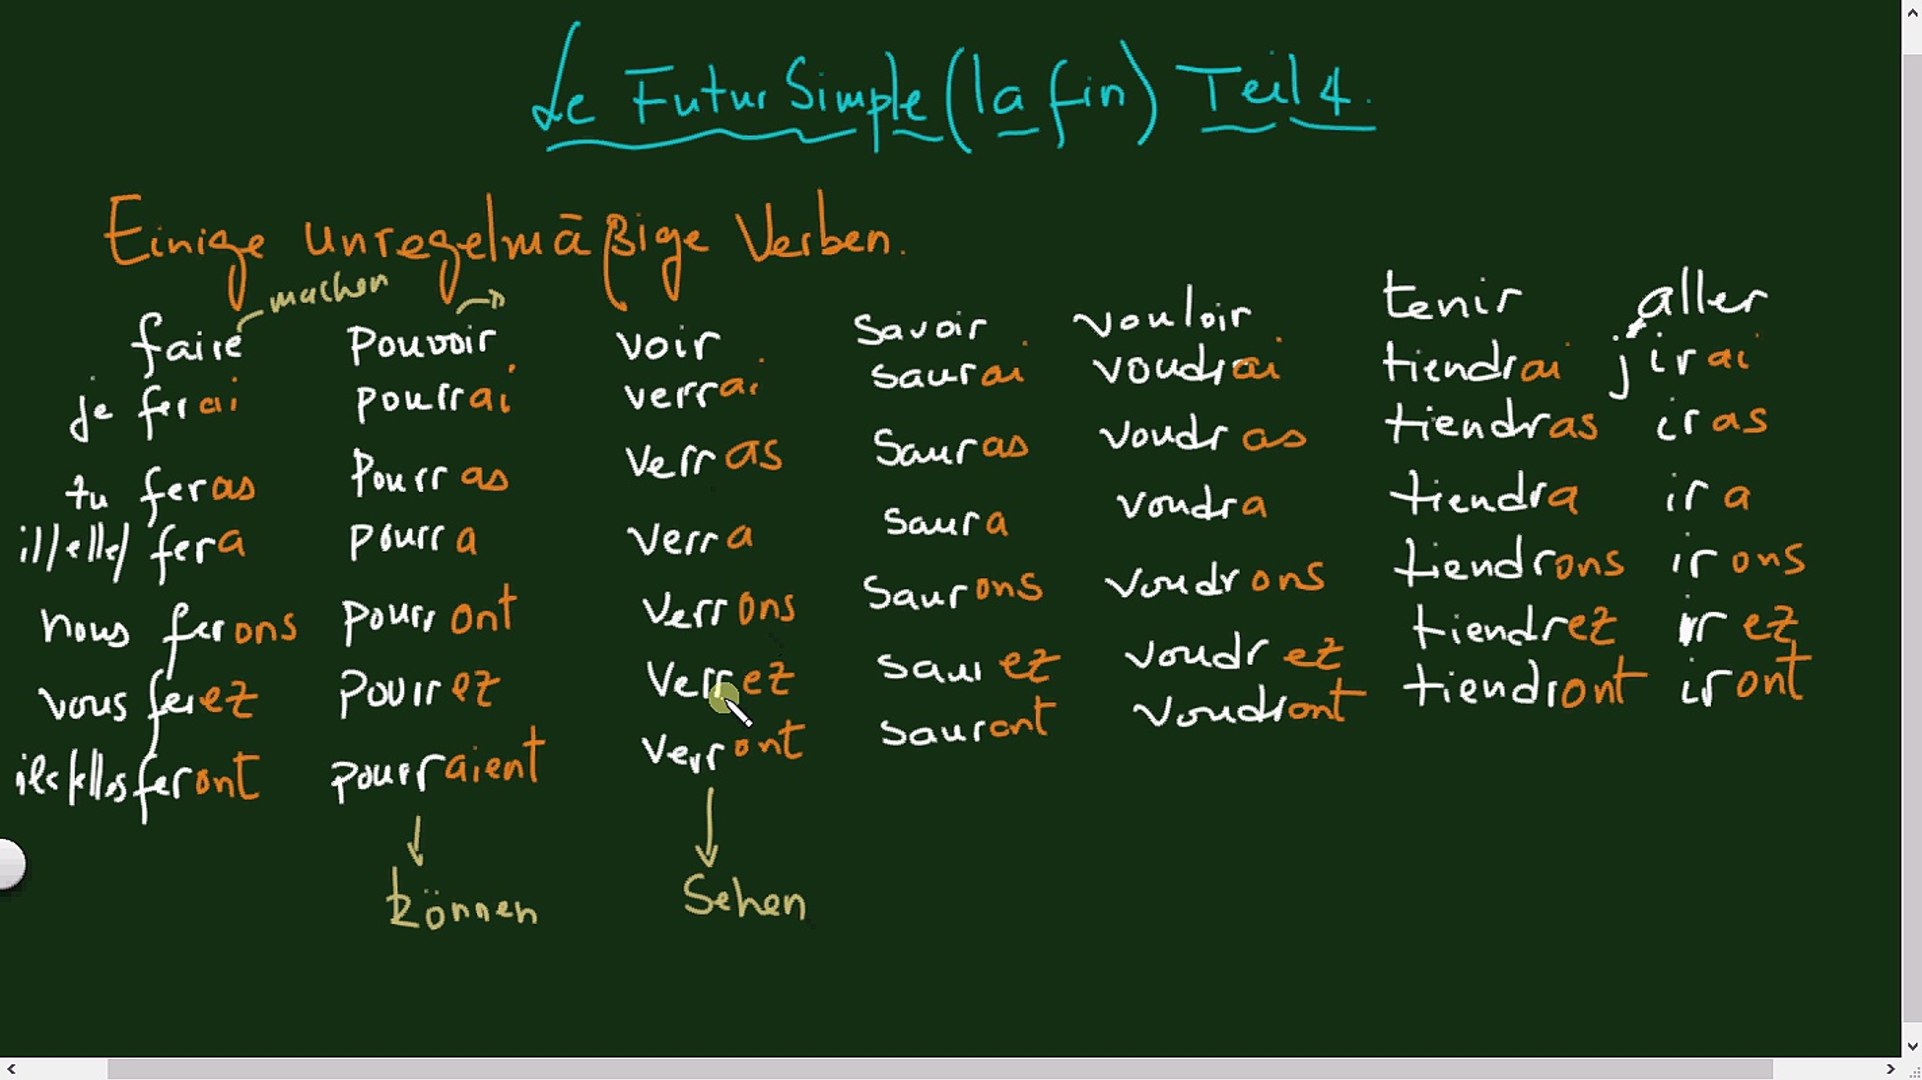 Le Futur Simple (la fin) Teil 4.
Einige unregelmäßige Verben.
machen
faire pouvoir voir savoir vouloir tenir aller
je ferai pourrai verrai saurai voudrai tiendrai j'irai
tu feras pourras verras sauras voudras tiendras iras
il/elle/ fera pourra verra saura voudra tiendra ira
nous ferons pourront verrons saurons voudrons tiendrons irons
vous ferez pourrez verrez saurez voudrez tiendrez irez
ils/elles feront pourraient verront sauront voudront tiendront iront
können Sehen